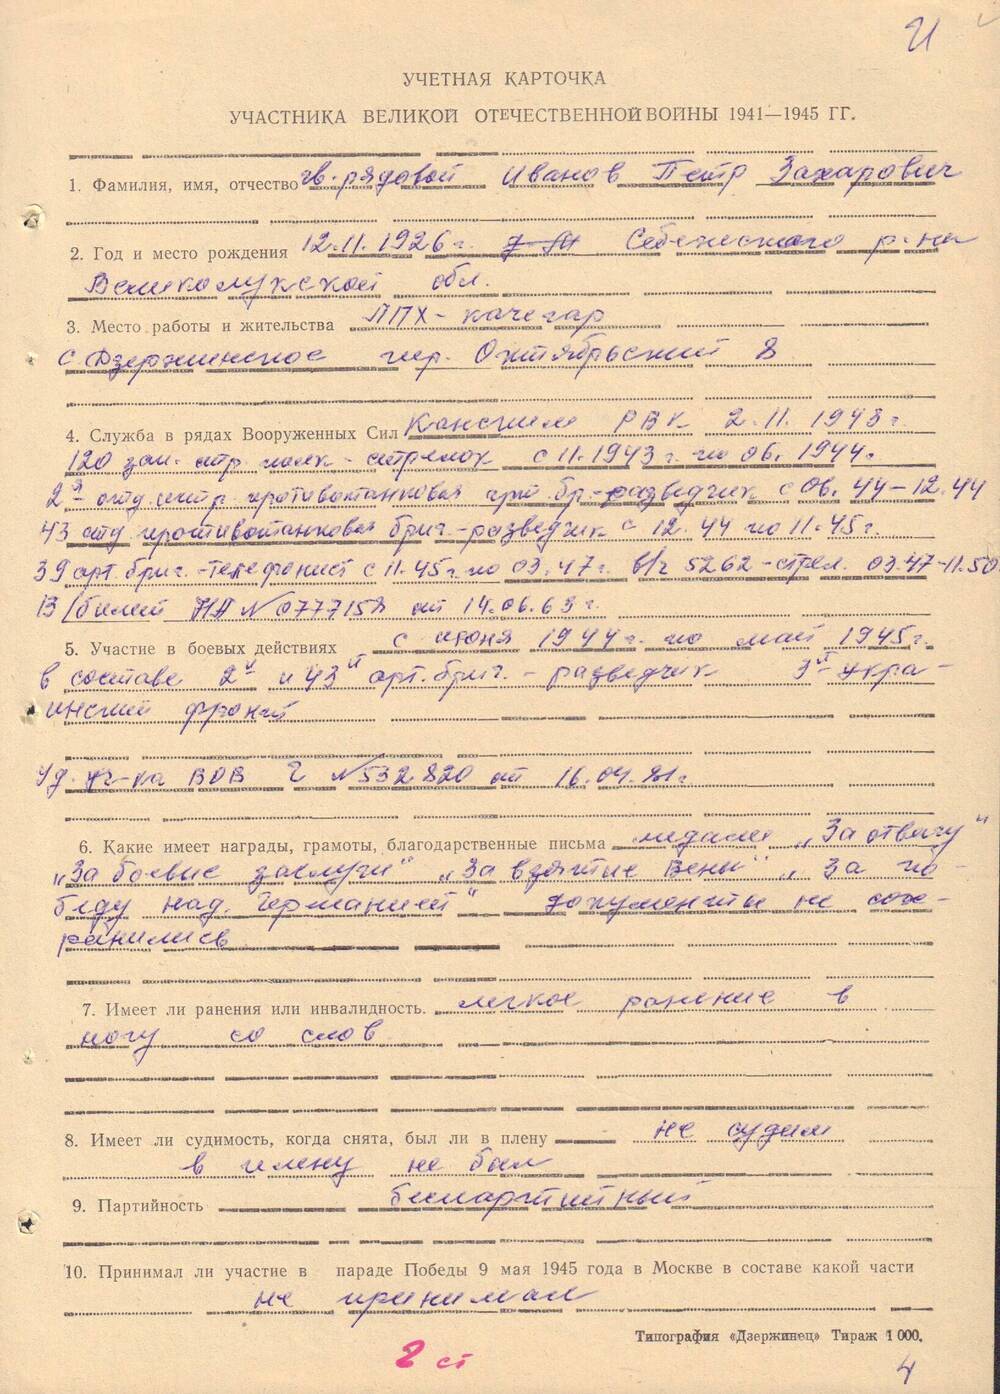 И
УЧЕТНАЯ КАРТОЧКА
УЧАСТНИКА ВЕЛИКОЙ ОТЕЧЕСТВЕННОЙ ВОЙНЫ 1941—1945 ГГ.
1. Фамилия, имя, отчество гв. рядовой Иванов Петр Захарович
2. Год и место рождения 12.11.1926 г. Себежского р-на
Великолукской обл.
3. Место работы и жительства ЛПХ - качегар
с. Дзержинское пер. Октябрьский 8
4. Служба в рядах Вооруженных Сил Канским РВК 2.11.1943 г.
120 зап. стр. полк - стрелок с 11.1943 г. по 06.1944 г.
2я отд. истр. противотанковая арт. бр. - разведчик с 06.44 - 12.44
43 отд. противотанковая бриг. - разведчик с 12.44 по 11.45 г.
39 арт. бриг. - телефонист с 11.45 г. по 03.47 г. в/ч 5262 - стрел. 03.47-11.50
В/билет НП № 077715 от 14.06.63 г.
5. Участие в боевых действиях с июня 1944 г. по май 1945 г.
в составе 2й и 43й арт. бриг. - разведчик 3й Укра-
инский фронт
Уд. уч-ка ВОВ Г № 532820 от 16.04.81 г.
6. Какие имеет награды, грамоты, благодарственные письма медали „За отвагу"
„За боевые заслуги" „За взятие Вены" „За по-
беду над Германией" документы не сох-
ранились
7. Имеет ли ранения или инвалидность. легкое ранение в
ногу со слов
8. Имеет ли судимость, когда снята, был ли в плену не судим
в плену не был
9. Партийность беспартийный
10. Принимал ли участие в параде Победы 9 мая 1945 года в Москве в составе какой части
не принимал
Типография «Дзержинец» Тираж 1 000.
2 ст
4